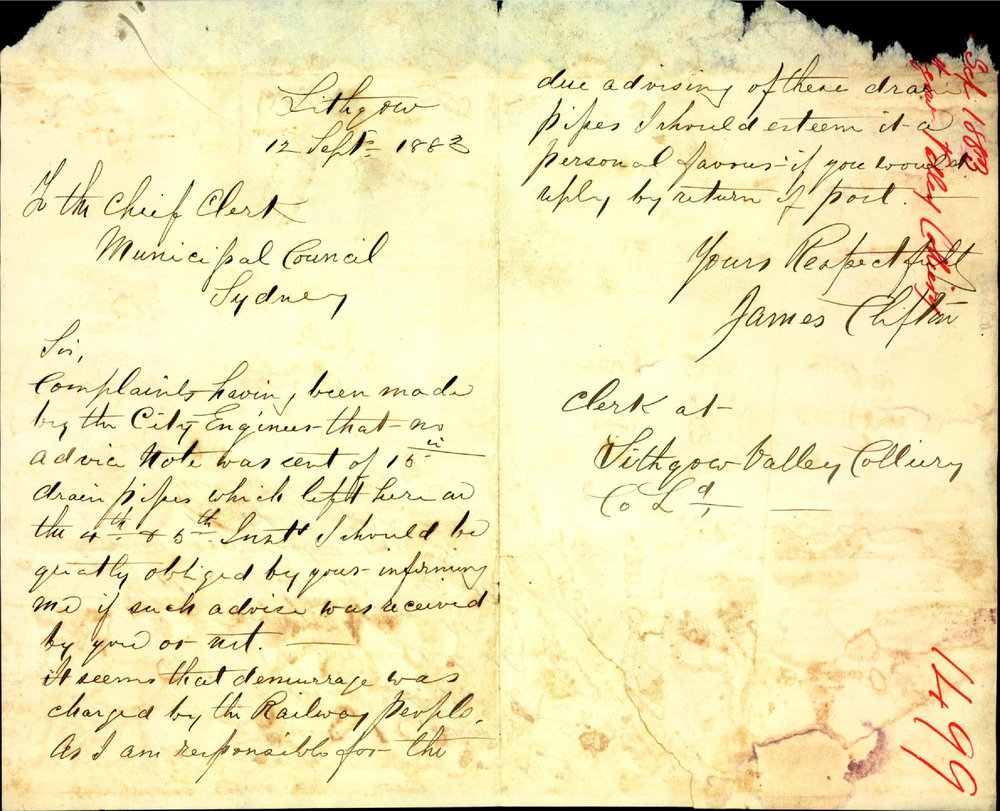 Lithgow
12 Sept. 1883
To the Chief Clerk
Municipal Council
Sydney
Sir,
Complaints having been made
by the City Engineer that no
advice Note was cent of 15 in
drain pipes which left here on
the 4th & 5th Inst I should be
greatly obliged by your informing
me if such advise was received
by you or not. —
it seems that demurrage was
charged by the Railway people.
As I am responsible for the
due advising of these drain
pipes I should esteem it a
personal favour if you would
reply by return of post. —
Yours Respectfully
James Clifton
Clerk at
Lithgow Valley Colliery
Co Ld, —
Sept 1883
Valley Colliery
1499